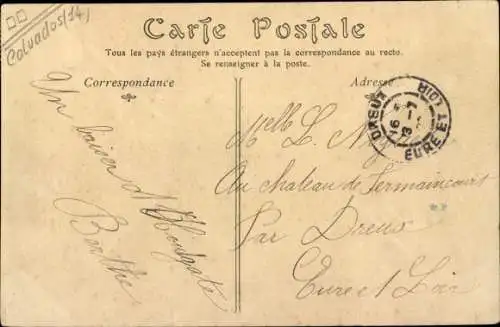 Calvados (14)
Carte Postale
Tous les pays étrangers n'acceptent pas la correspondance au recto.
Se renseigner à la poste.
Correspondance
Adresse
Un baiser d'Houlgate
Berthe
DREUX
16
13 - 7
EURE ET LOIR
Melle L.
Au chateau de Germaincourt
Par Dreux
Eure et Loir